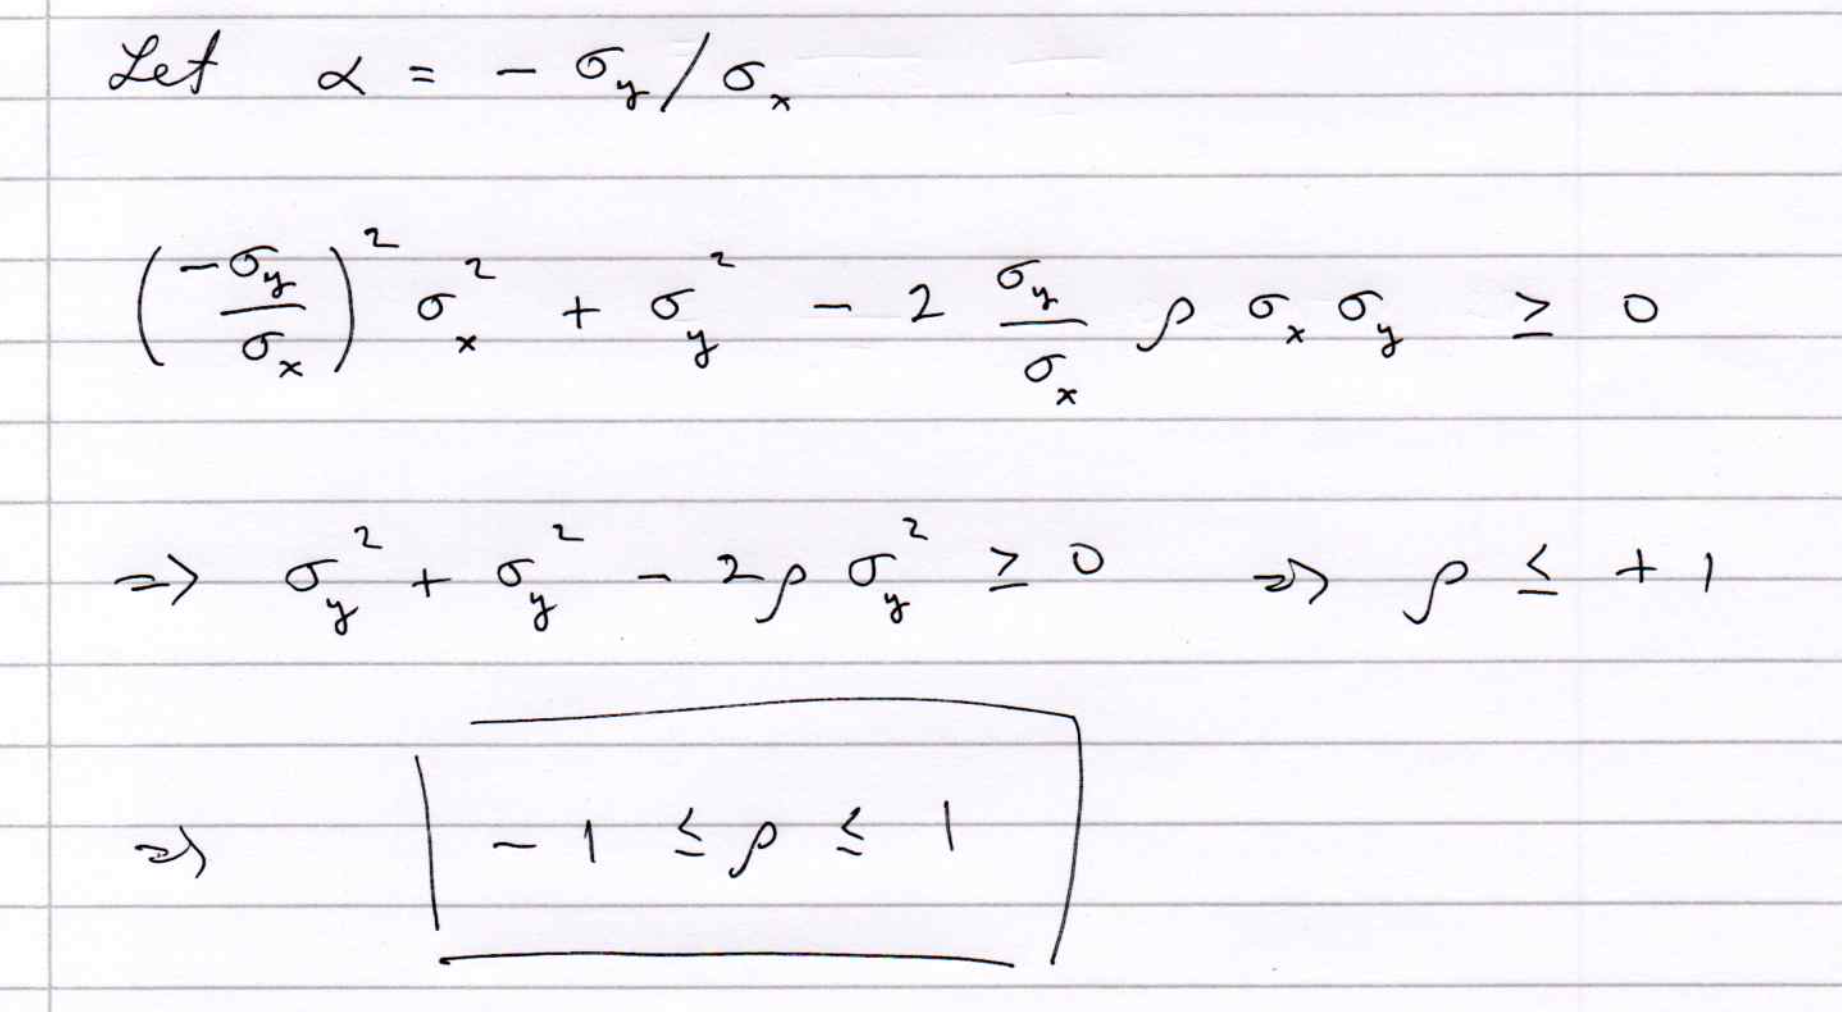 Let α = - σ_y / σ_x
(-σ_y / σ_x)² σ_x² + σ_y² - 2 (σ_y / σ_x) ρ σ_x σ_y ≥ 0
=> σ_y² + σ_y² - 2ρ σ_y² ≥ 0 => ρ ≤ +1
=> -1 ≤ ρ ≤ 1